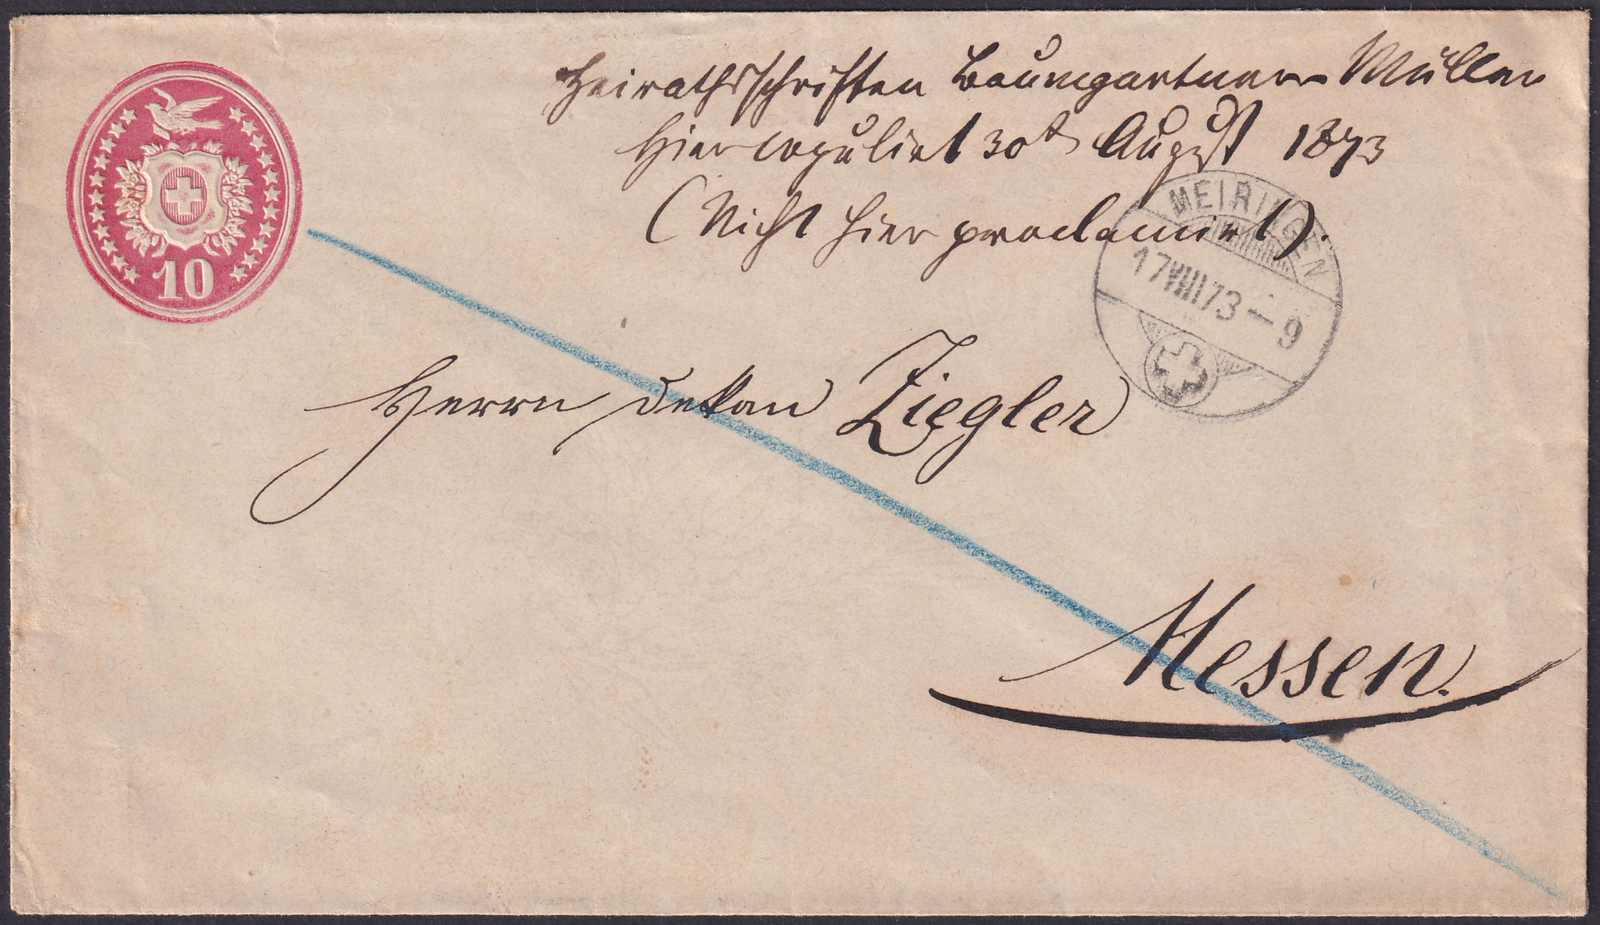 Heirathsschriften Baumgartner Müller
Hier copuliert 30t August 1873
(Nicht hier proclamiert).
MEIRINGEN
17 VIII 73 – 9
10
Herrn Dekan Ziegler
Messen.